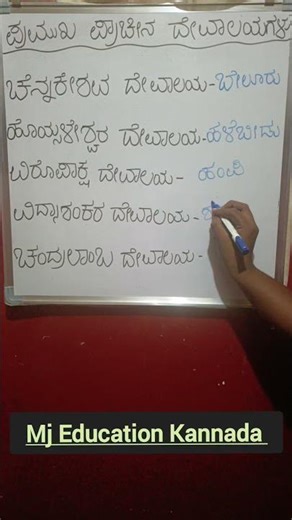 ಪ್ರಮುಖ ಪ್ರಾಚೀನ ದೇವಾಲಯಗಳು
ಚೆನ್ನಕೇಶವ ದೇವಾಲಯ - ಬೇಲೂರು
ಹೊಯ್ಸಳೇಶ್ವರ ದೇವಾಲಯ - ಹಳೆಬೀಡು
ವಿರೂಪಾಕ್ಷ ದೇವಾಲಯ - ಹಂಪಿ
ವಿದ್ಯಾಶಂಕರ ದೇವಾಲಯ -
ಚಂದ್ರಲಾಂಬ ದೇವಾಲಯ -
Mj Education Kannada